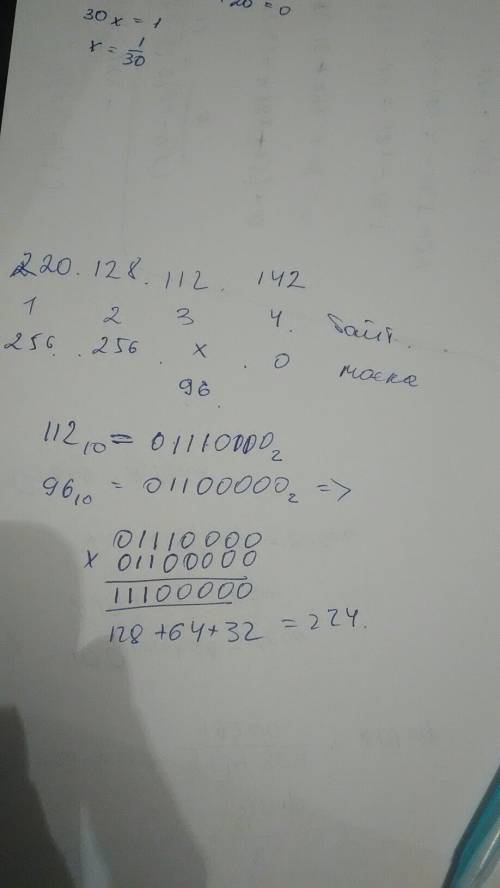 20 = 0
30x = 1
x = 1/30
220. 128. 112. 142
1 2 3 4. байт.
256. .256 . x . 0 маска
96.
112₁₀ = 01110000₂
96₁₀ = 01100000₂ =>
01110000
x 01100000
11100000
128 + 64 + 32 = 224.